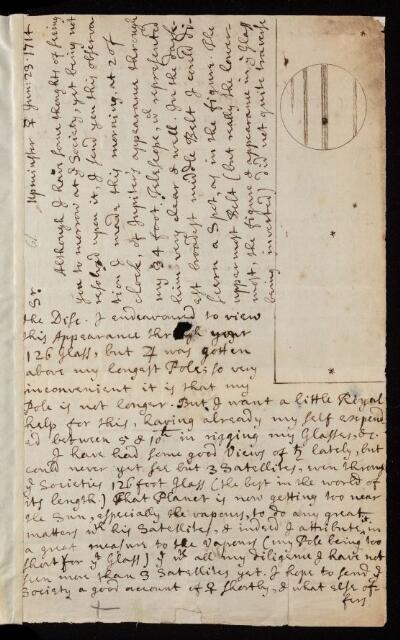 Upminster ☿ Jun: 23 1714
Sr
Although I have some thoughts of seeing
you to morrow at ye Society, yet being not
resolved upon it, I send you this observa
tion I made this morning, at 2 of
clock, of Jupiter's appearance through
my 34 foot Telescope, wch represented
him very clear & well. In the dark-
est broadest middle Belt I could di-
scern a Spot, as in the figure. The
uppermost Belt (but really the lower-
most, the figure & appearance in ye Glass
being inverted) did not quite traverse
the Disc. I endeavoured to view
this Appearance through your
126 Glass, but ♃ was gotten
above my longest Pole; so very
inconvenient it is that my
Pole is not longer. But I want a little Royal
help for this, having already my self expend
ed between 5 & 10 in rigging my Glasses, &c.
I have had some good Views of ♄ lately, but
could never yet see but 3 Satellites, even through
ye Societies 126 foot Glass (the best in the world of
its length.) That Planet is now getting too near
the Sun, especially the vapours, to do any great
matters wth his Satellites, & indeed I attribute it in
a great measure to the Vapours (my Pole being too
short for ye Glass) yt wth all my diligence I have not
seen more than 3 Satellites yet. I hope to send ye
Society a good account of shortly, & what else of-
fers